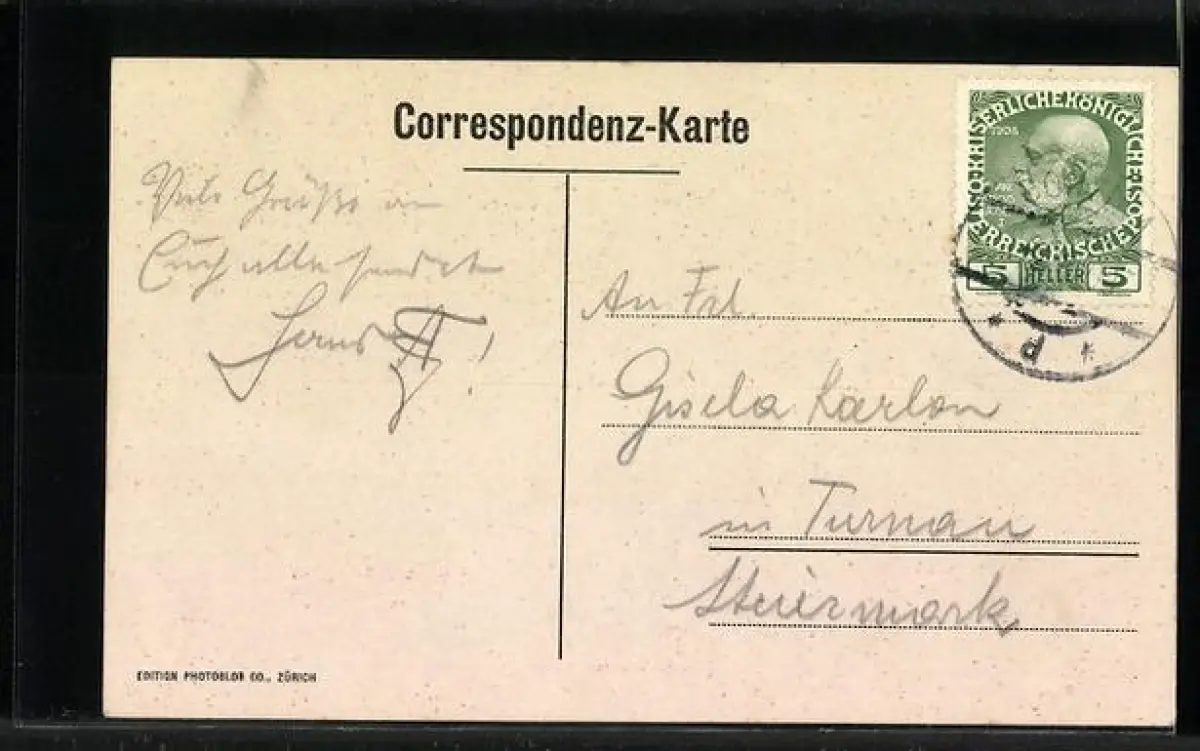 Correspondenz-Karte
KAISERLICHE KÖNIGLICHE ÖSTERREICHISCHE POST
1908
5 HELLER 5
Viele Grüße an
Euch alle sendet
An Frl.
Gisela Karlon
in Turnau
Steiermark
EDITION PHOTOGLOB CO., ZÜRICH